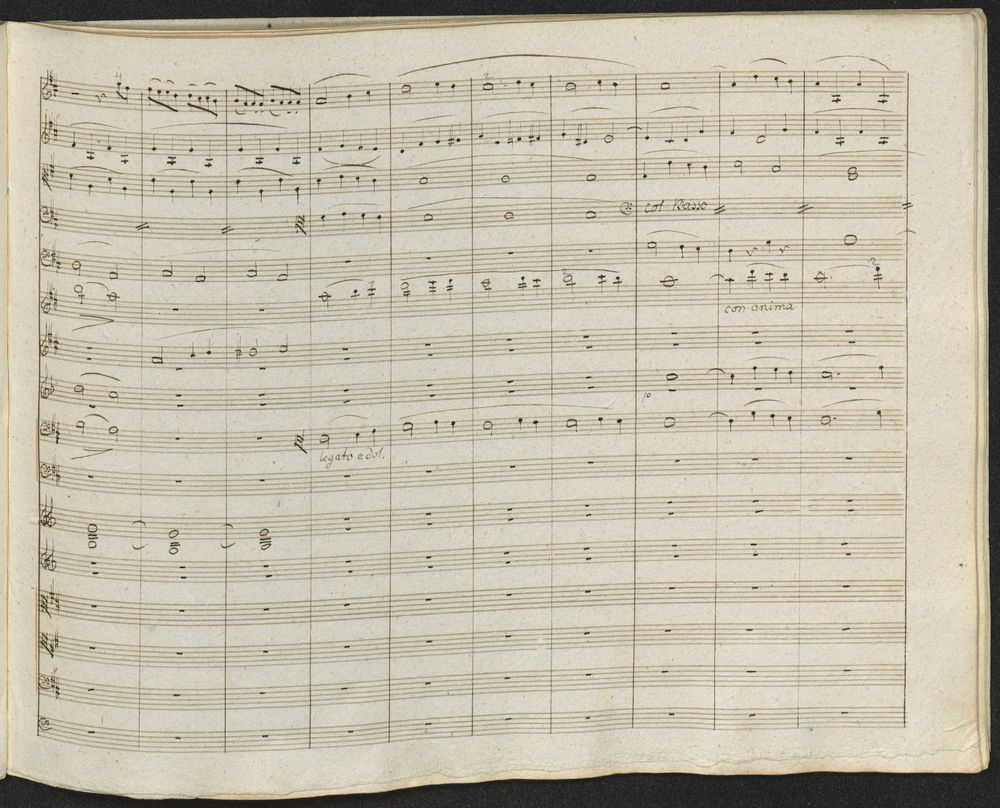 4
2
col Basso
1
2
2
con anima
p
legato e dol.